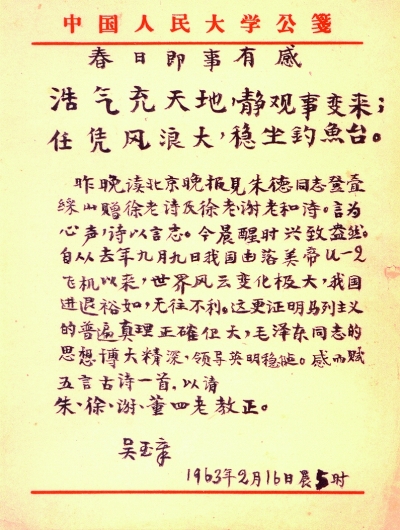 中国人民大学公笺
春日即事有感
浩气充天地,静观事变来;
任凭风浪大,稳坐钓魚台。
昨晚读北京晚报見朱德同志登
綵山赠徐老诗及徐老谢老和诗。言为
心声,诗以言志。今晨醒时兴致盎然。
自从去年九月九日我国击落美帝U-2
飞机以来,世界风云变化极大,我国
进退裕如,无往不利。这更证明马列主义
的普遍真理正確伟大,毛泽东同志的
思想博大精深,领导英明稳。感而赋
五言古诗一首,以请
朱、徐、谢、董四老教正。
吴玉章
1963年2月16日晨5时